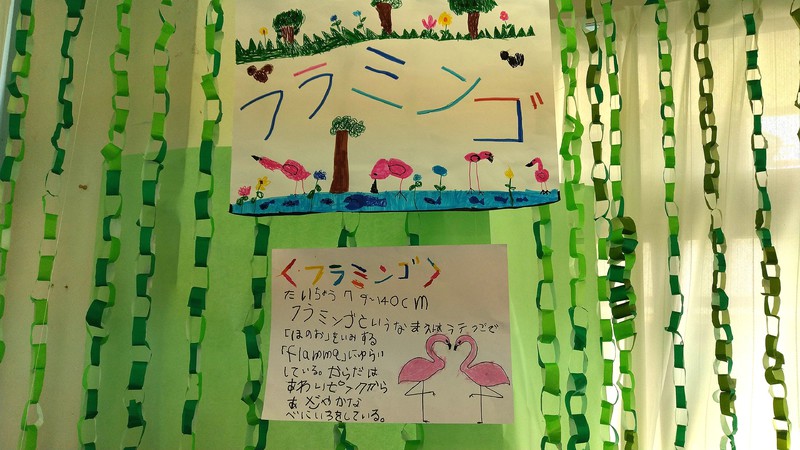 フラミンゴ
〈フラミンゴ〉
たいちょう79~140cm
フラミンゴというなまえはラテンごで
「ほのお」をいみする
「flamma」にゆらい
している。からだは
あわいピンクから
あざやかな
べにいろをしている。